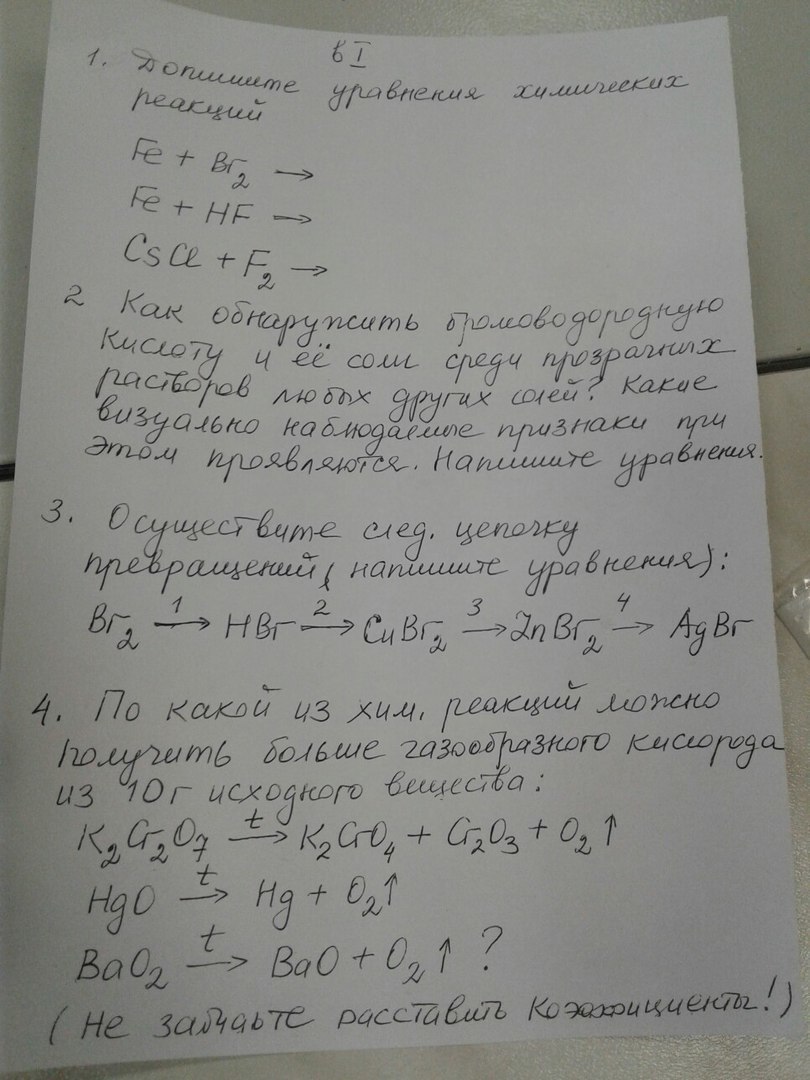 в I
1. Допишите уравнения химических
реакций
Fe + Br₂ →
Fe + HF →
CsCl + F₂ →
2 Как обнаружить бромоводородную
кислоту и её соли среди прозрачных
растворов любых других солей? Какие
визуально наблюдаемые признаки при
этом проявляются. Напишите уравнения.
3. Осуществите след. цепочку
превращений ( напишите уравнения):
Br₂ —1→ HBr —2→ CuBr₂ —3→ ZnBr₂ —4→ AgBr
4. По какой из хим. реакций можно
получить больше газообразного кислорода
из 10г исходного вещества:
K₂Cr₂O₇ —t→ K₂CrO₄ + Cr₂O₃ + O₂↑
HgO —t→ Hg + O₂↑
BaO₂ —t→ BaO + O₂↑ ?
(Не забудьте расставить коэффициенты!)